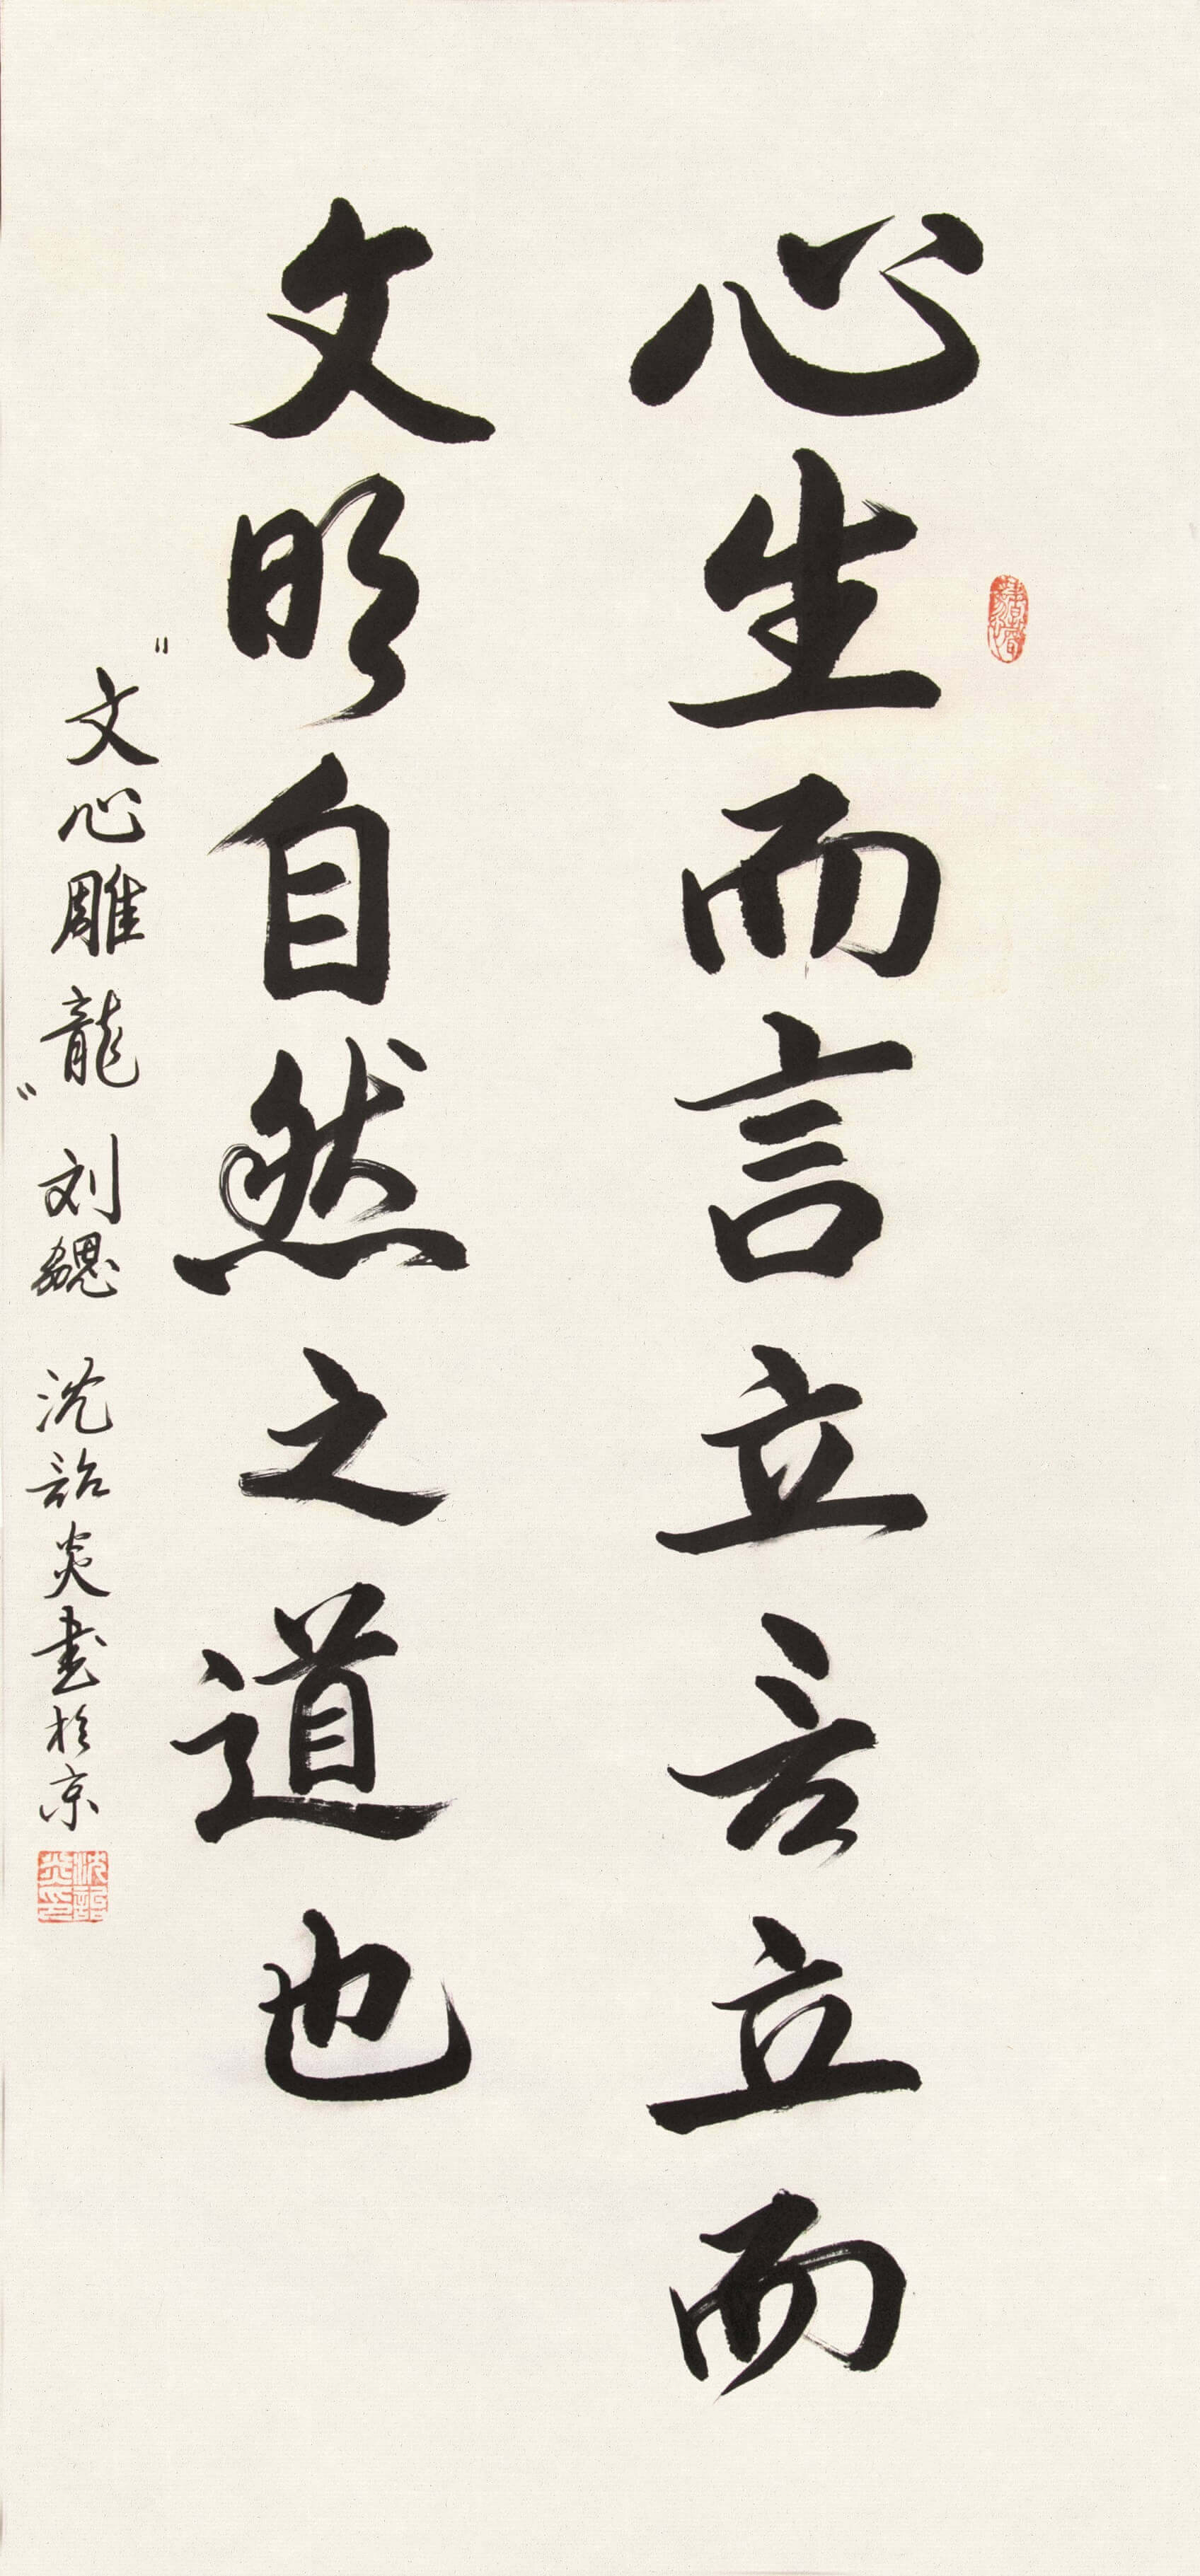 心生而言立言立而
文明自然之道也
"文心雕龍"刘勰 沈詔炎書於京